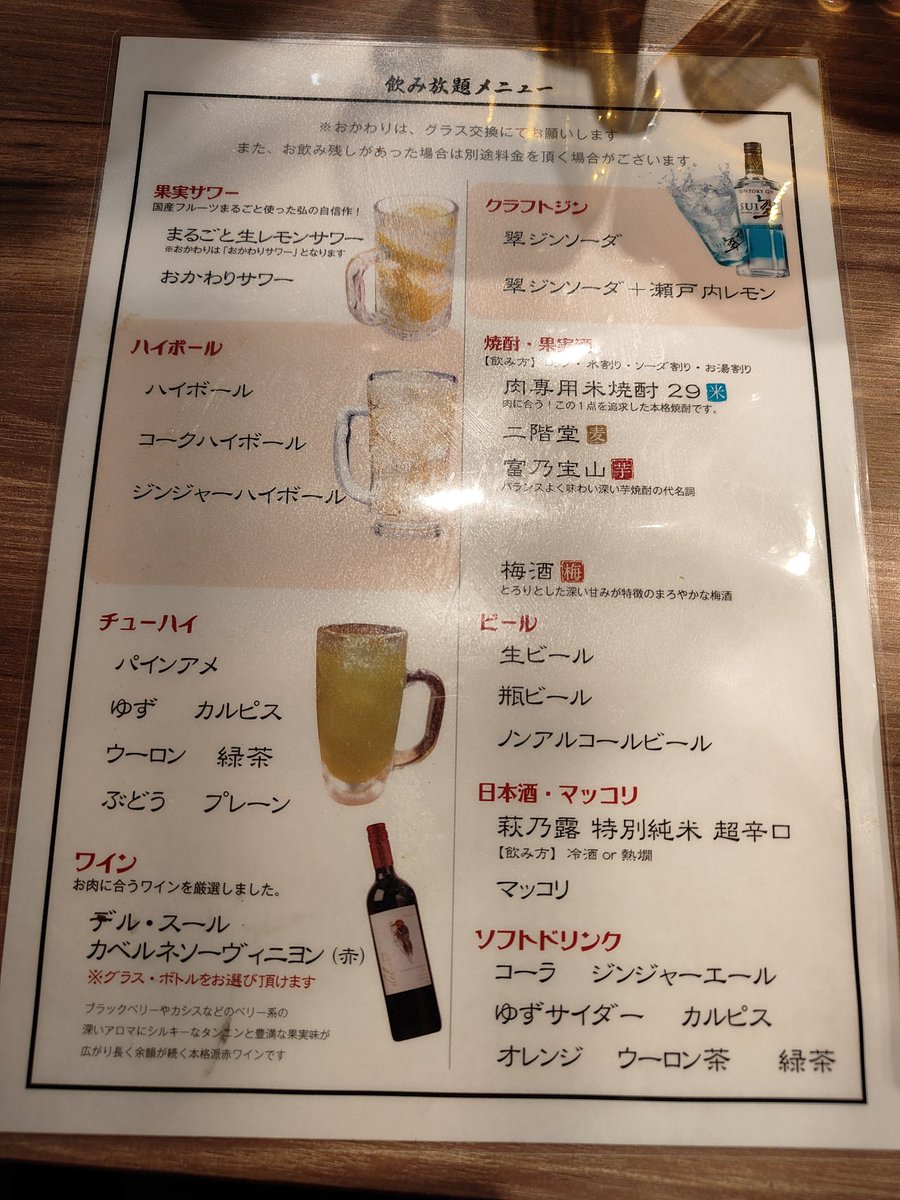 飲み放題メニュー
※おかわりは、グラス交換にてお願いします
また、お飲み残しがあった場合は別途料金を頂く場合がございます。
果実サワー
国産フルーツまるごと使った弘の自信作！
まるごと生レモンサワー
※おかわりは「おかわりサワー」となります
おかわりサワー
ハイボール
ハイボール
コークハイボール
ジンジャーハイボール
チューハイ
パインアメ
ゆず カルピス
ウーロン 緑茶
ぶどう プレーン
ワイン
お肉に合うワインを厳選しました。
デル・スール
カベルネソーヴィニヨン（赤）
※グラス・ボトルをお選び頂けます
ブラックベリーやカシスなどのベリー系の
深いアロマにシルキーなタンニンと豊満な果実味が
広がり長く余韻が続く本格派赤ワインです
クラフトジン
SUNTORY GIN
SUI
翠
翠ジンソーダ
翠ジンソーダ＋瀬戸内レモン
焼酎・果実酒
【飲み方】ロック・水割り・ソーダ割り・お湯割り
肉専用米焼酎 29 米
肉に合う！この１点を追求した本格焼酎です。
二階堂 麦
富乃宝山 芋
バランスよく味わい深い芋焼酎の代名詞
梅酒 梅
とろりとした深い甘みが特徴のまろやかな梅酒
ビール
生ビール
瓶ビール
ノンアルコールビール
日本酒・マッコリ
萩乃露 特別純米 超辛口
【飲み方】 冷酒 or 熱燗
マッコリ
ソフトドリンク
コーラ ジンジャーエール
ゆずサイダー カルピス
オレンジ ウーロン茶 緑茶